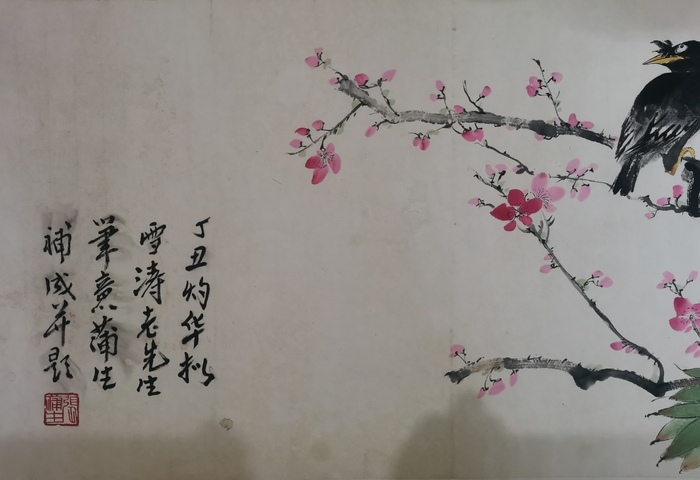 丁丑灼华拟
雪涛老先生
笔意蒲生
補成并题